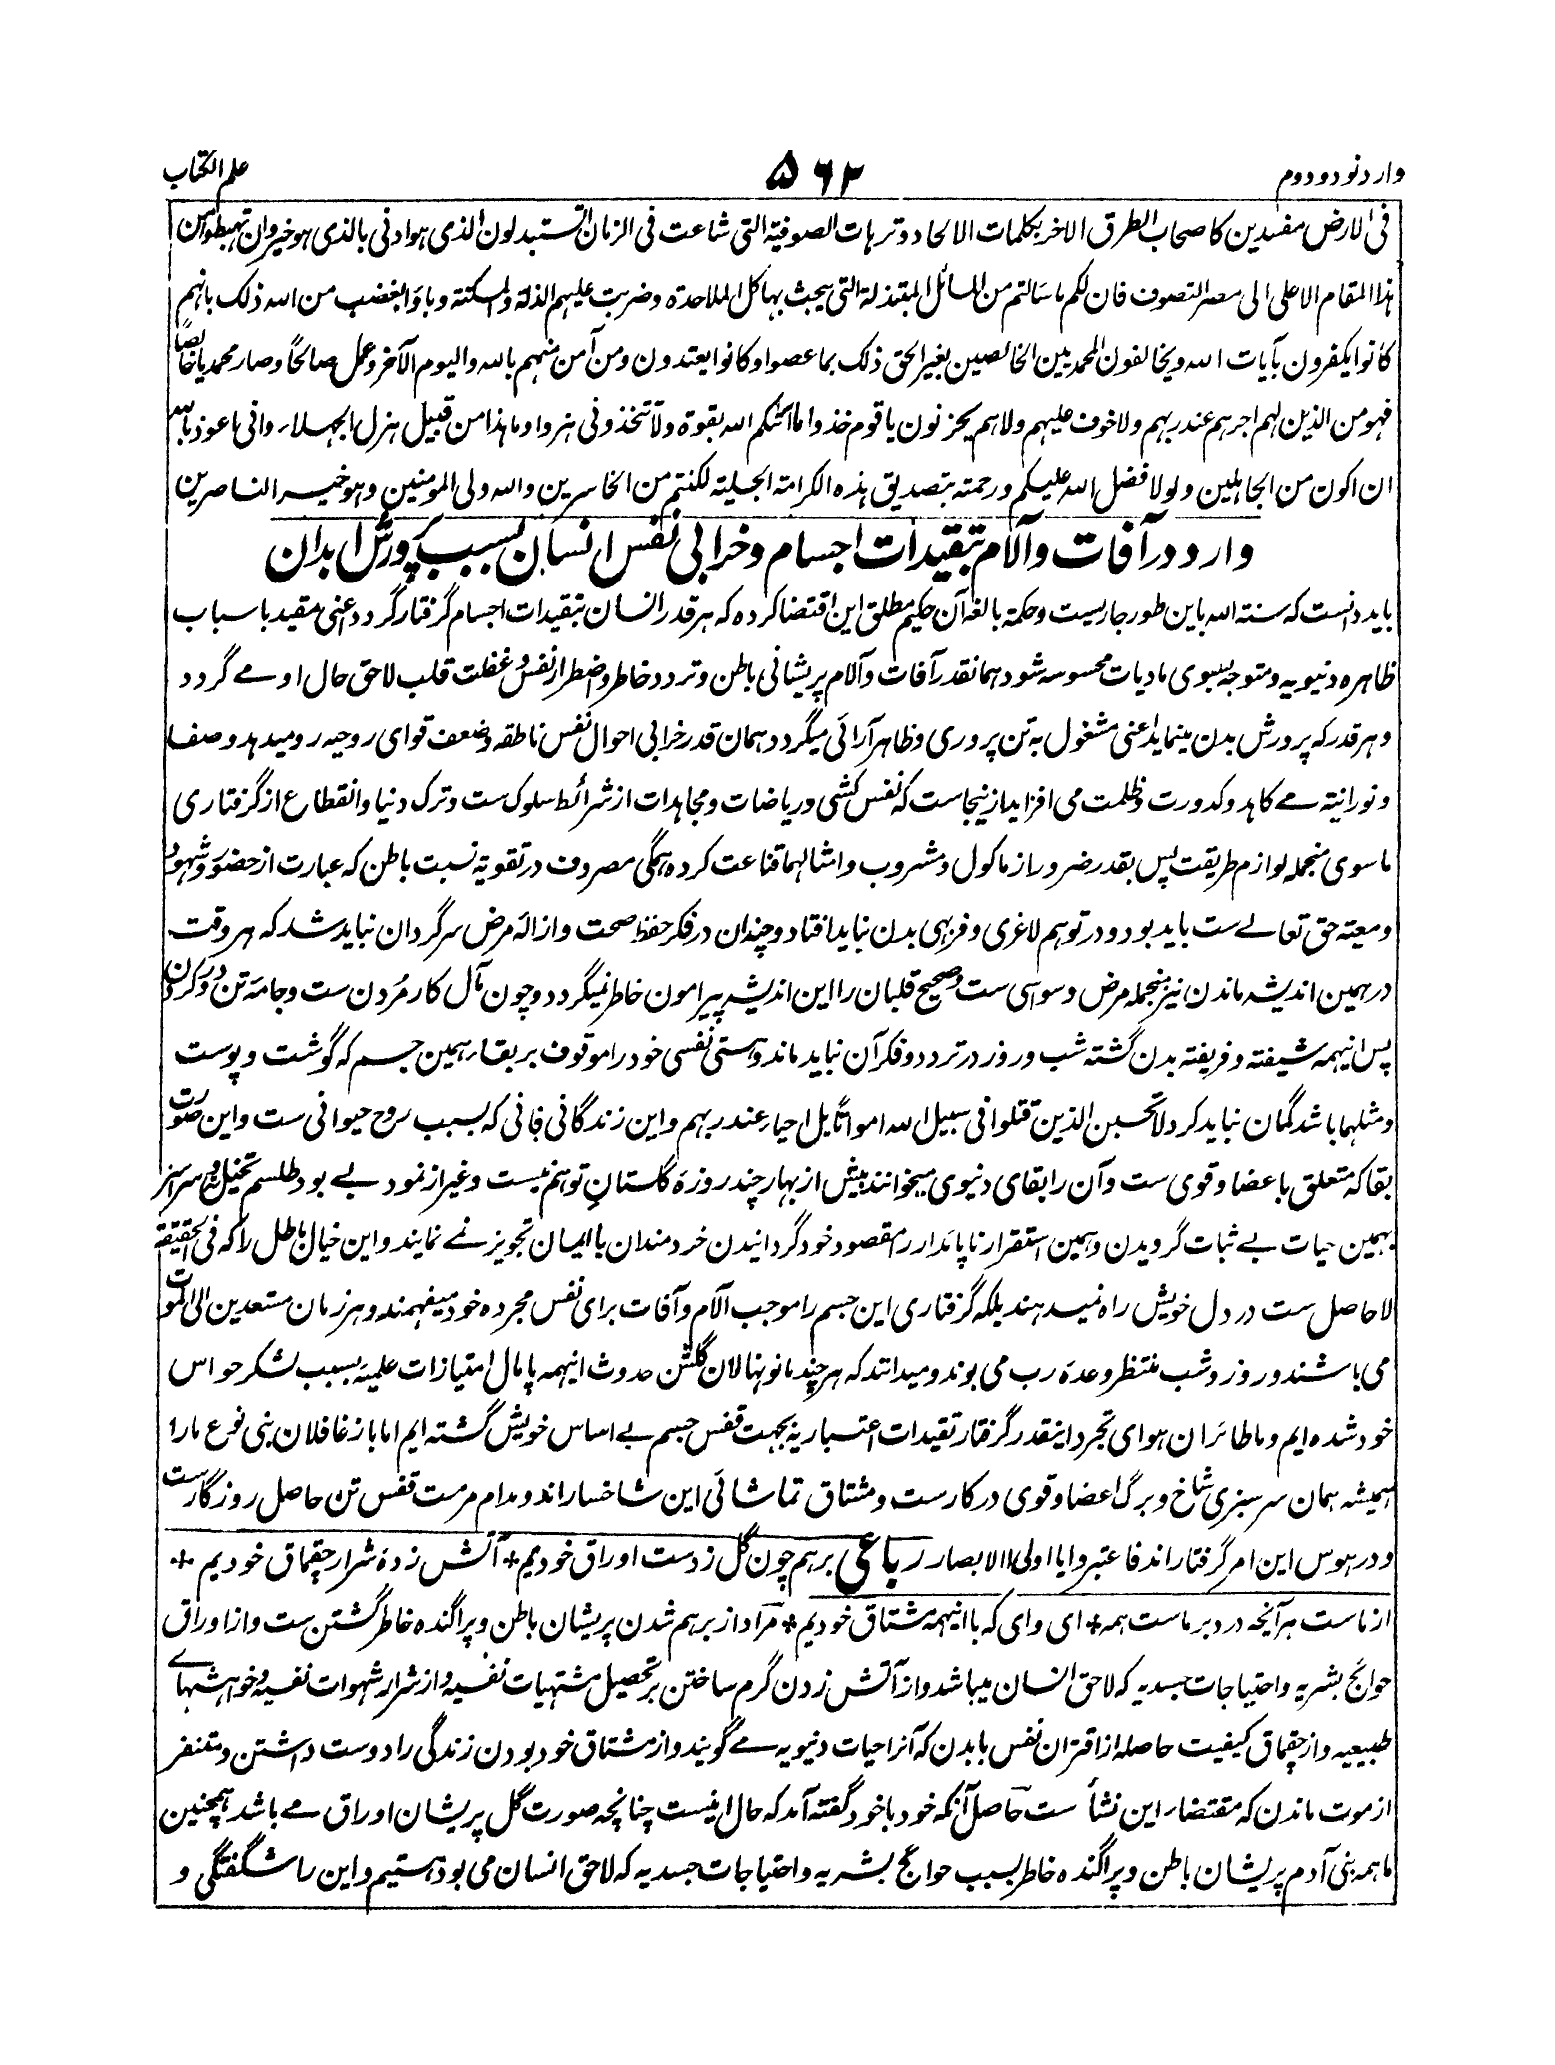 وارد نود و دوم
۵۶۲
علم الکتاب
فی الارض مفسدین کاصحاب الطرق الاخر بکلمات الالحاد و ترہات الصوفیة التی شاعت فی الزمان اتستبدلون الذی ہو ادنی بالذی ہو خیر و ان تہبطوا من
ہذا المقام الاعلی الی مصر التصوف فان لکم ما سألتم من المسائل المبتذلة التی یبحث بہا کل الملاحدة و ضربت علیہم الذلة و المسکنة و باؤ ابغضب من اللہ ذلک بانہم
کانوا یکفرون بآیات اللہ و یخالفون المحمدیین الخالصین بغیر الحق ذلک بما عصوا و کانوا یعتدون و من آمن منہم باللہ و الیوم الآخر و عمل صالحاً و صار محمدیا خالصاً
فہو من الذین لہم اجرہم عند ربہم و لا خوف علیہم و لا ہم یحزنون یا قوم خذوا ما آتٰکم اللہ بقوة و لا تتخذونی ہزوا و ما ہذا من قبیل ہزل الجہلاء و انی اعوذ باللہ
ان اکون من الجاہلین و لولا فضل اللہ علیکم و رحمتہ بتصدیق ہذہ الکرامة الجلیة لکنتم من الخاسرین و اللہ ولی المومنین و ہو خیر الناصرین
وارد در آفات و آلام تبقیدات اجسام و خرابی نفس انسان بسبب پرورش ابدان
باید دانست که سنة اللہ باین طور جاریست و حکمة بالغه آن حکیم مطلق این اقتضا کرده که هر قدر انسان بتقیدات اجسام گرفتار گردد اعنی مقید باسباب
ظاهره دنیویه و متوجه بسوی مادیات محسوسه شود همانقدر آفات و آلام پریشانی باطن و تردد خاطر و اضطرار نفس و غفلت قلب لاحق حال او مے گردد
و هر قدر که پرورش بدن مینماید اعنی مشغول به تن پروری و ظاهر آرائی میگردد همان قدر خرابی احوال نفس ناطقه و ضعف قوای روحیه رومیدهد و صفا
و نورانیة مے کاهد و کدورت و ظلمت می افزاید ازینجاست که نفس کشی و ریاضات و مجاهدات از شرائط سلوک ست و ترک دنیا و انقطاع از گرفتاری
ماسوی منجمله لوازم طریقت پس بقدر ضرور از ماکول و مشروب و امثالهما قناعت کرده همگی مصروف در تقویة نسبت باطن که عبارت از حضور و شهود
و معیة حق تعالے ست باید بود و در توهم لاغری و فربهی بدن نباید افتاد و چندان در فکر حفظ صحت و ازالهٔ مرض سرگردان نباید شد که هر وقت
در همین اندیشه ماندن نیز منجمله مرض وسواسی ست و صحیح قلبان را این اندیشه پیرامون خاطر نمیگردد و چون مآل کار مُردن ست و جامهٔ تن در کردن
پس اینهمه شیفته و فریفته بدن گشته شب و روز در تردد و فکر آن نباید ماند و هستی نفسی خود را موقوف بر بقاء همین جسم که گوشت و پوست
و مثلهما باشد گمان نباید کرد و لا تحسبن الذین قتلوا فی سبیل اللہ امواتاً بل احیاء عند ربهم و این زندگانی فانی که بسبب روح حیوانی ست و این صورت
بقا که متعلق باعضا و قوی ست و آن را بقای دنیوی میخوانند بیش از بهار چند روزهٔ گلستانِ توهم نیست و غیر از نمود بے بود طلسم تخیل نه و سراسر
بهمین حیات بے ثبات گرویدن و همین استقرار ناپائدار را مقصود خود گردانیدن خردمندان با ایمان تجویز نمے نمایند و این خیال باطل را که فی الحقیقة
لا حاصل ست در دل خویش راه نمیدهند بلکه گرفتاری این جسم را موجب آلام و آفات برای نفس مجرده خود میفهمند و هر زمان مستعدین الی الموت
می باشند و روز و شب منتظر وعدهٔ رب می بوند و میدانند که هر چند ما نونهالان گلشن حدوث اینهمه پامال امتیازات علمیه بسبب لشکر حواس
خود شده ایم و ما طائران هوای تجرد اینقدر گرفتار تقیدات اعتباریه بجهت قفس جسم بے اساس خویش گشته ایم اما باز غافلان بنی نوع ما را
همیشه همان سرسبزی شاخ و برگ اعضا و قوی در کارست و مشتاق تماشائی این شاخسار اند و مدام مرمت قفس تن حاصل روزگارست
و در هوس این امر گرفتار اند فاعتبروا یا اولی الابصار رباعی برهم چون گل ز دست اوراق خودیم + آتش زدهٔ شرار چقماق خودیم +
از ماست هر آنچه در دبر ماست همه + ای وای که با اینهمه مشتاق خودیم + مراد از برهم شدن پریشان باطن و پراگنده خاطر گشتن ست و از اوراق
حوائج بشریه و احتیاجات جسدیه که لاحق انسان میباشد و از آتش زدن گرم ساختن بر تحصیل مشتهیات نفسیه و از شرار شهوات نفسیه و خواهشهاے
طبیعیه و از چقماق کیفیت حاصله از اقتران نفس بابدن که آنرا حیات دنیویه مے گویند و از مشتاق خود بودن زندگی را دوست داشتن و متنفر
از موت ماندن که مقتضاء این نشأ ست حاصل آنکه خود با خود گفته آمد که حال اینست چنانچه صورت گل پریشان اوراق مے باشد همچنین
ما همه بنی آدم پریشان باطن و پراگنده خاطر بسبب حوائج بشریه و احتیاجات جسدیه که لاحق انسان می بود هستیم و این را شگفتگی و